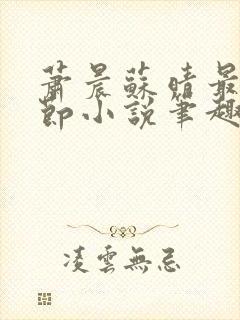 蕭晨蘇晴最
節小說筆趣
凌雲無忌